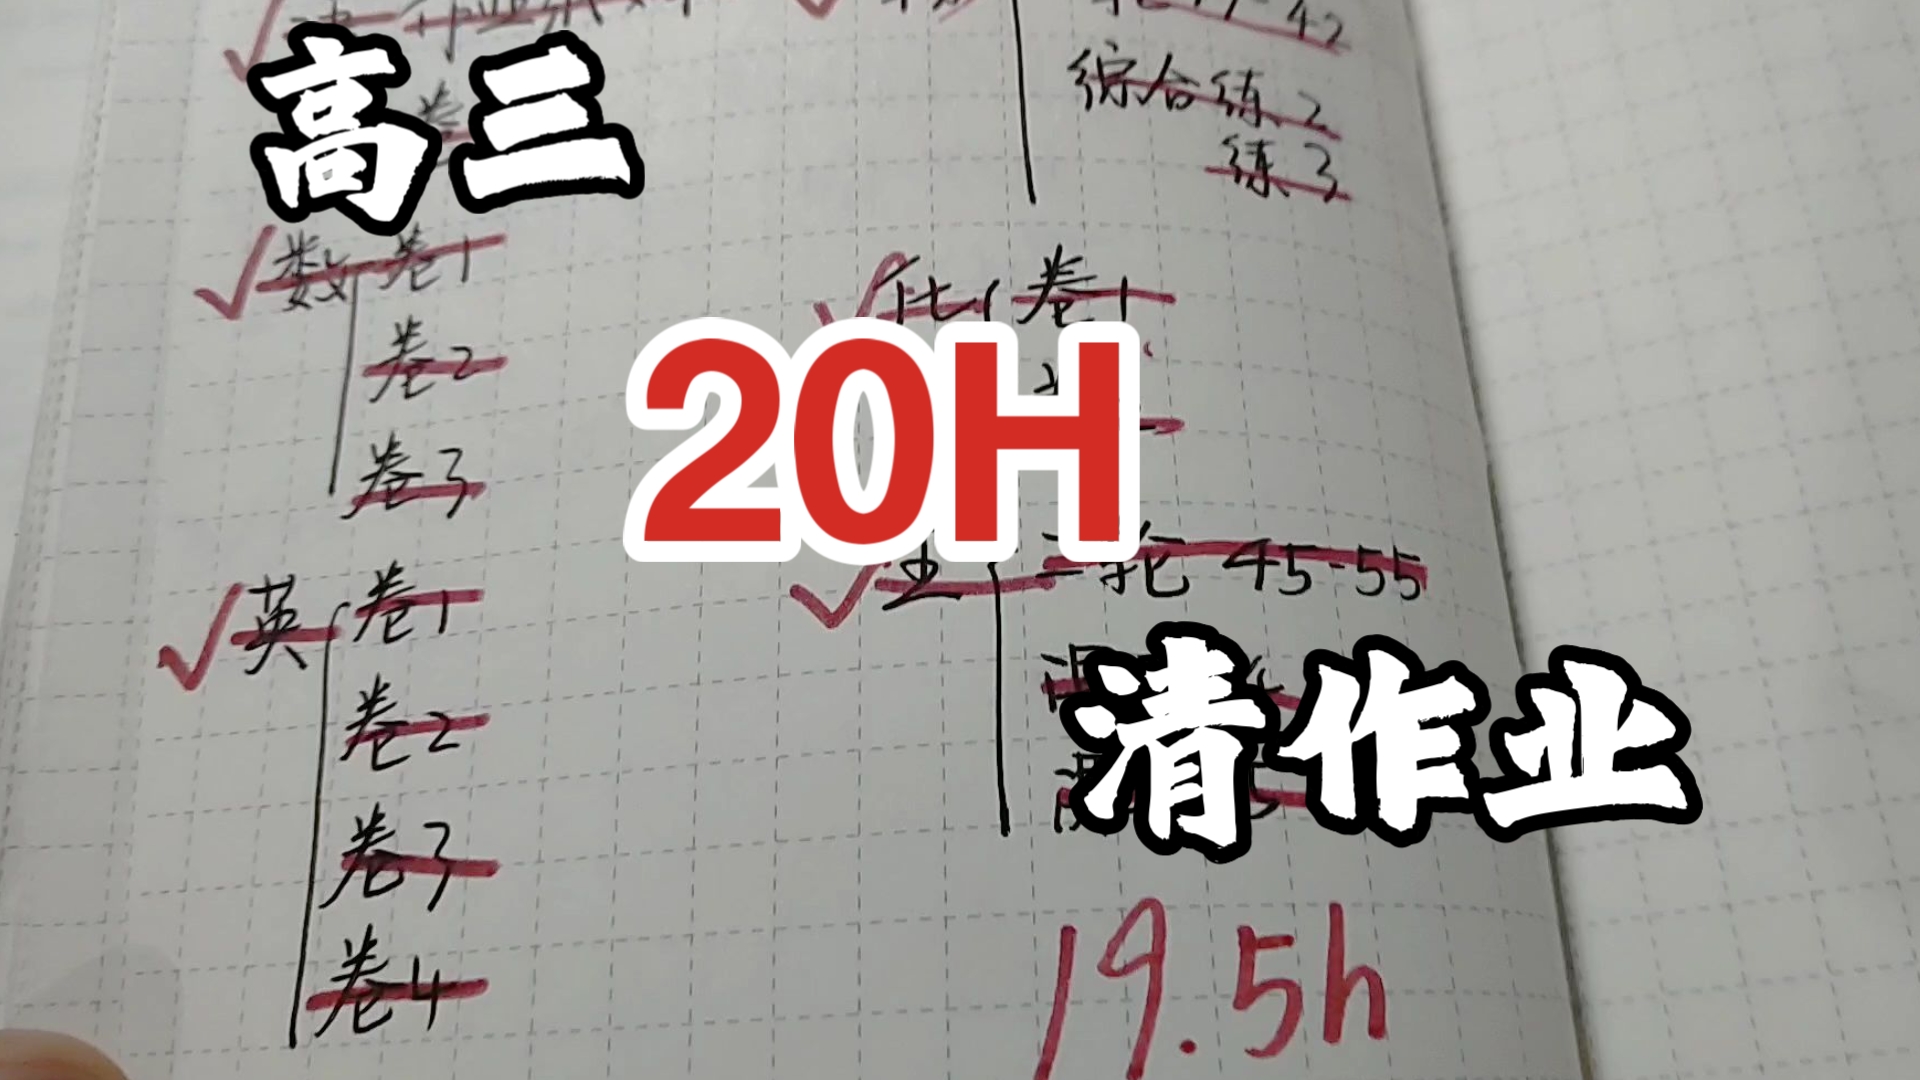 高三
20H
清作业
数 卷1
卷2
卷3
英 卷1
卷2
卷3
卷4
42
综合练2
练3
化 卷1
生 二轮 45-55
19.5h